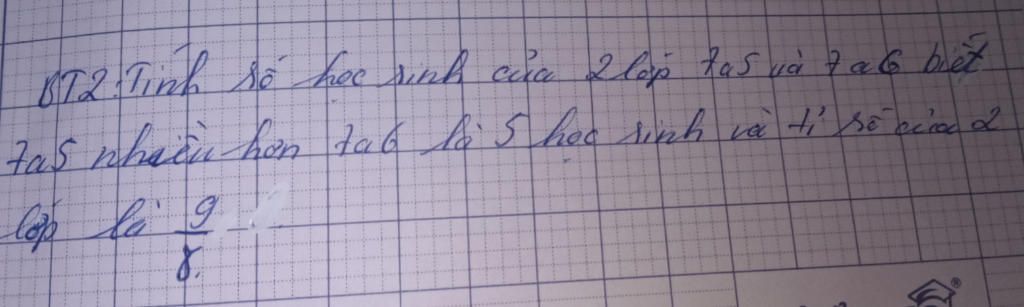 BT2: Tính số học sinh của 2 lớp 7a5 và 7a6 biết
7a5 nhiều hơn 7a6 là 5 học sinh và tỉ số của 2
lớp là 9/8.
®